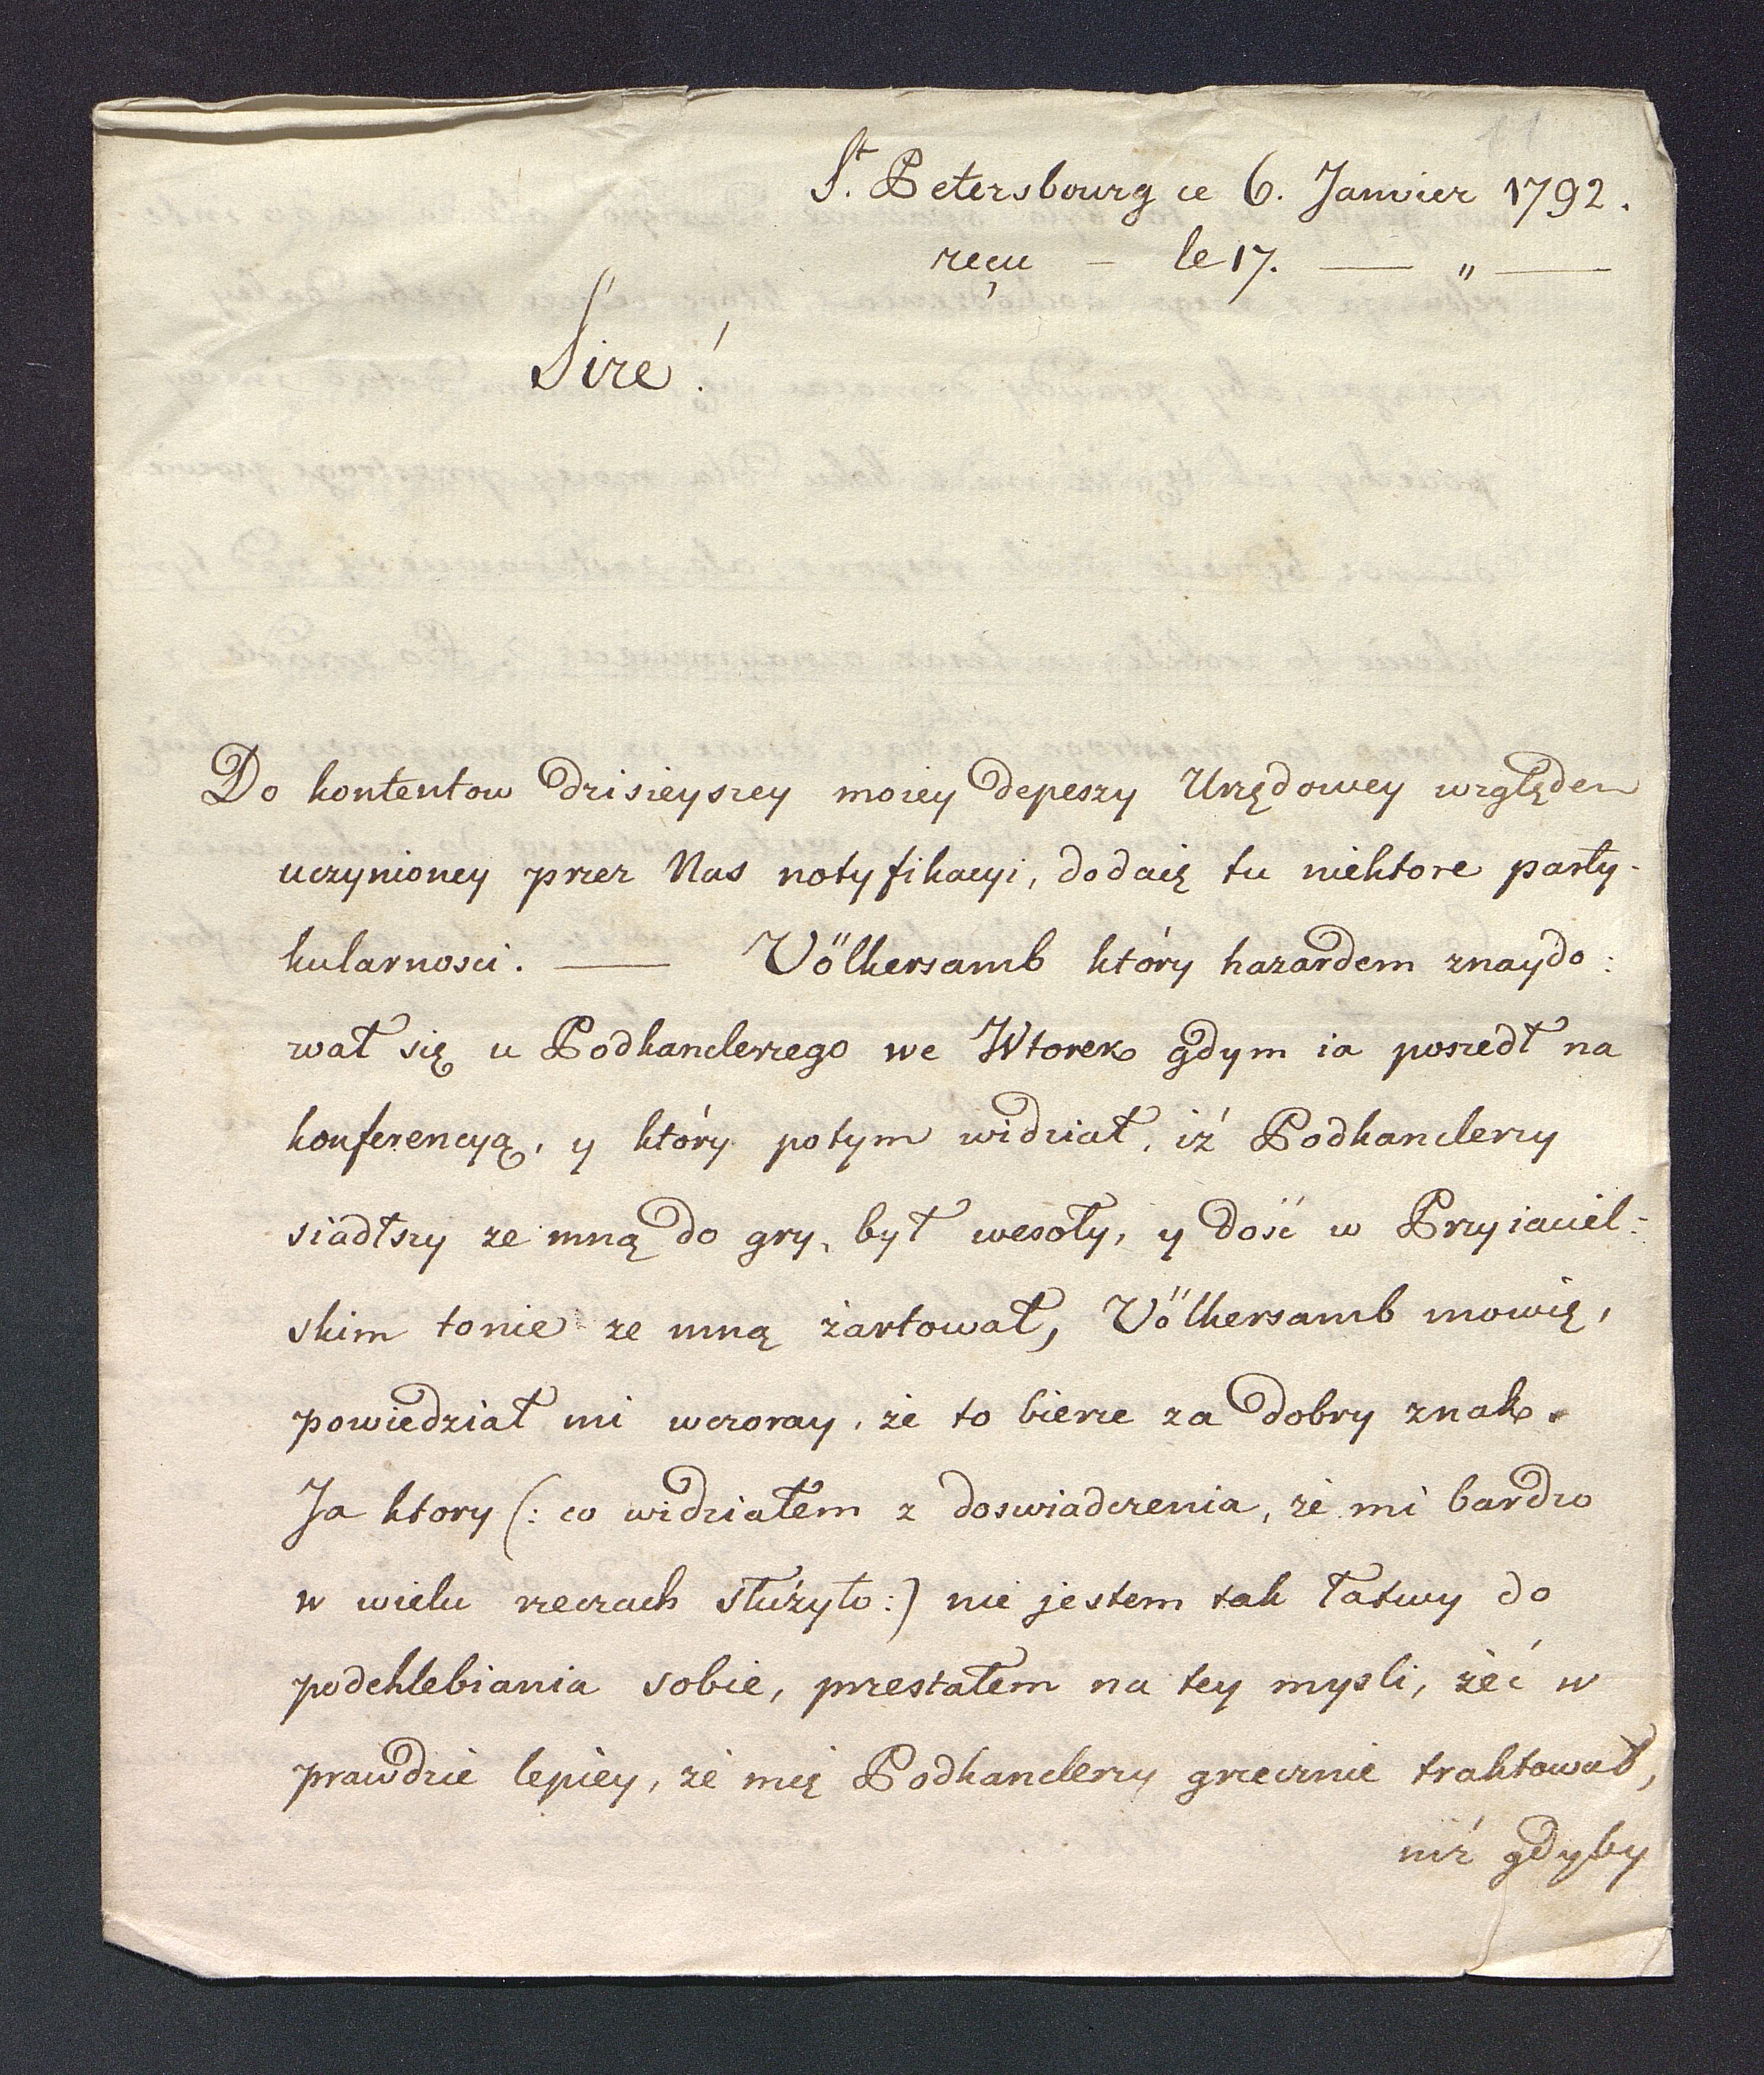 11
St. Petersbourg ce 6. Janvier 1792.
reçu – le 17. — „ —
Sire!
Do kontentow dzisieyszey moiey depeszy Urzędowey względem
uczynioney przez Nas notyfikacyi, dodaię tu niektore party-
kularnosci. — Völkersamb który hazardem znaydo:
wał się u Podkanclerzego we Wtorek gdym ia poszedł na
konferencyą, y który potym widział, iż Podkanclerzy
siadłszy ze mną do gry, był wesoły, y dość w Przyiaciel:
skim tonie ze mną żartował, Völkersamb mowię,
powiedział mi wczoray, że to bierze za dobry znak.
Ja ktory (: co widziałem z doswiadczenia, że mi bardzo
w wielu rzeczach służyło:) nie jestem tak łatwy do
podchlebiania sobie, przestałem na tey mysli, żeć w
prawdzie lepiey, że mię Podkanclerzy grzecznie traktował,
niż gdyby